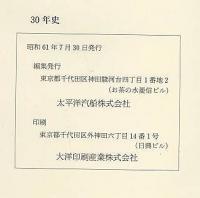 30年史
昭和61年7月30日発行
編集発行
東京都千代田区神田駿河台四丁目1番地2
(お茶の水醤信ビル)
太平洋汽船株式会社
印刷
東京都千代田区外神田六丁目14番1号
(日興ビル)
大洋印刷産業株式会社